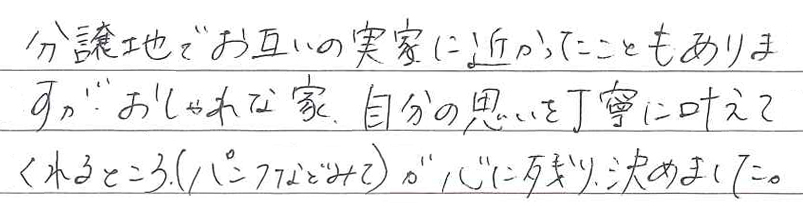 分譲地でお互いの実家に近かったこともありま
すが、おしゃれな家、自分の思いを丁寧に叶えて
くれるところ、(パンフなどみて)が心に残り、決めました。